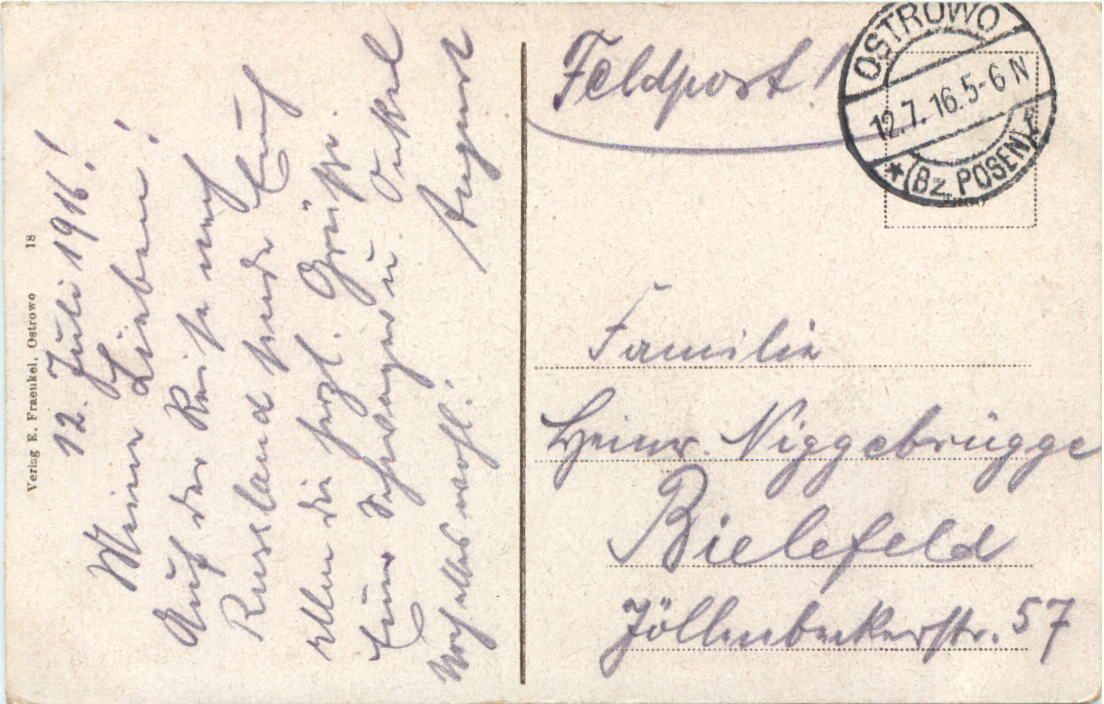 Verlag E. Fraenkel, Ostrowo 18
12. Juli 1916!
Meine Lieben!
Auf der Reise nach
Russland sende Euch
allen die herzl. Grüße.
Euer Schwager u. Onkel
Noch alles wohl! August
Feldpost!
OSTROWO
12.7.16.5-6N
*(Bz. POSEN)
Familie
Heinr. Niggebrügge
Bielefeld
Jöllenbeckerstr. 57